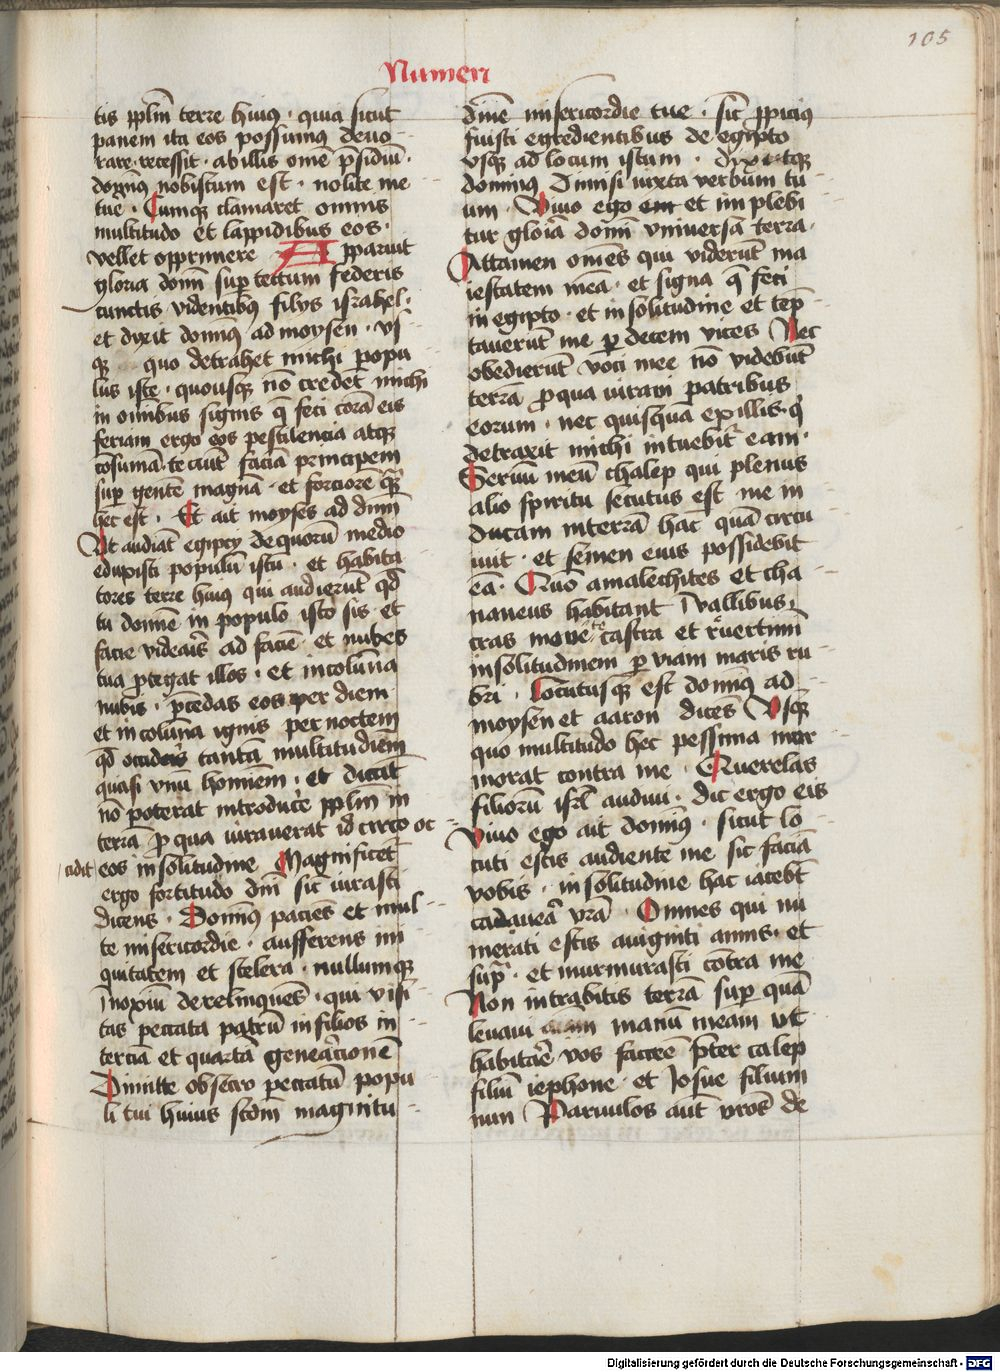 105
Numeri
tis pplm̄ terre huius · quia sicut
panem ita eos possumus deuo
rare · recessit · ab illis om̄e p̄sidiū ·
domin9 nobiscum est · nolite me
tue᷑ · Cumq3 clamaret omnis
multitudo et lappidibus eos ·
vellet opprimere Apparuit
gloria domī sup tectum federis
cunctis videntib9 filys israhel ·
et dixit domin9 ad moysen · vs
q3 quo detrahet michi popu
lus iste · quousq3 nō credet michi
in omībus signis q̄ feci corā eis
feriam ergo eos pestilencia atq3
cōsumā · te aut̄ faciā principem
sup gentē magnā · et forciorē q̄3
hec est · Et ait moyses ad dnm̄
Ut audiāt egipcy de quorū medio
eduxisti populū istū · et habita
tores terre huius qui audierūt qd̄
tu domīe in populo isto sis · et
facie videa᷑is ad faciē · et nubes
tua p̄tegat illos · et in colūna
nubis · p̄cedas eos per diem
et in colūna ignis per noctem
qd̄ occideris tantā multitudiēm
quasi vnū homīem · et dicāt
nō poterat introduc̄e pplm̄ in
terrā p qua iurauerat idcirco oc
cidit eos in solitudine Magnificet᷑
ergo fortitudo dnī sic iurasti
dicens · Domin9 paciēs et mul
te misericordie · aufferens ini
quitatem et scelera · nullumq3
īnoxiū derelinquēs · qui visi
tas peccata patrū in filios in
terciā et quartā genea᷑cionē
Dimitte obsecro peccatū popu
li tui huius scdm̄ magnitu
dinē misericordie tue · sic̄ p̄picius
fuisti egredientibus de egipto
vsq3 ad locum istum · dixitq3
dominus Dimisi iuxta verbum tu
um · Viuo ego et implebi
tur gloīa domī vniuersa terra ·
Attamen om̄es qui viderūt ma
iestatem meā · et signa q̄ feci
in egipto · et in solitudine et tēp
tauerūt me p decem vices Nec
obedierūt voci mee nō videbūt
terrā p qua iuraui patribus
eorum · nec quisquā ex illis · q̇
detraxit michi intuebit᷑ eam ·
Seruū meū chalep qui plenus
alio spiritu secutus est me in
ducam in terrā hāc quā circu
iuit · et semen eius possidebit
eā · Quō amalechites et cha
naneus habitant ī vallibus ·
cras mouete castra et rv̄ertimī
in solitudinem p viam maris ru
bri · Locutusq3 est domin9 ad
moysen et aaron dicēs Vsq3
quo multitudo hec pessima mur
murat contra me · Querelas
filiorū isrl̄ audiui · dic ergo eis
Viuo ego ait domin9 · sicut lo
cuti estis audiente me sic faciā
vobis · in solitudine hac iacebūt
cadauea᷑ vrā · Omnes qui nu
merati estis a viginti annis · et
sup̄ · et murmurasti cōtra me
Non intrabitis terrā sup quā
leuaui manū meam vt
habita᷑e vos facerē p̄ter calep
filiū iephone · et Josue filium
nun Paruulos aut̄ vrōs de
Digitalisierung gefördert durch die Deutsche Forschungsgemeinschaft - DFG